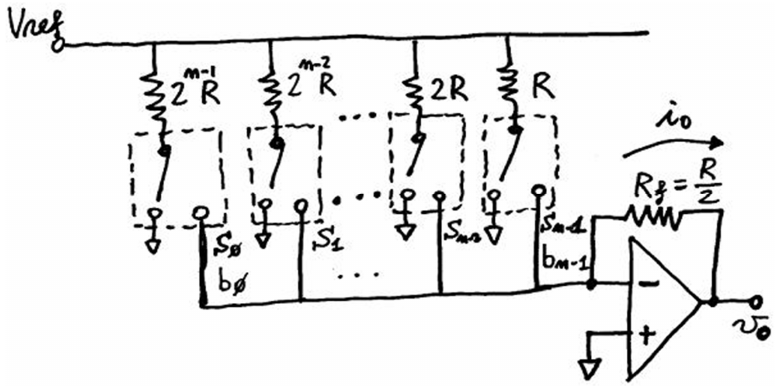 Vref
2^{n-1}R 2^{n-2}R 2R R
... 
i₀
R_f = R/2
...
S∅ S₁ S_{n-2} S_{n-1}
b∅ ... b_{n-1}
−
+
v₀